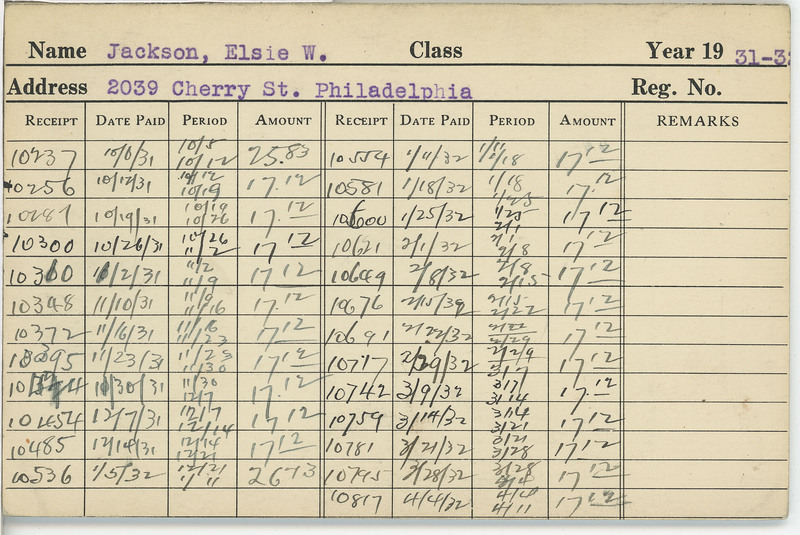 Name Jackson, Elsie W. Class Year 19 31-32
Address 2039 Cherry St. Philadelphia Reg. No.
RECEIPT DATE PAID PERIOD AMOUNT RECEIPT DATE PAID PERIOD AMOUNT REMARKS
10237 10/6/31 10/5 10/12 25.83 10554 1/11/32 1/11 1/18 17 12
10256 10/12/31 10/12 10/19 17.12 10581 1/18/32 1/18 1/25 17.12
10287 10/19/31 10/19 10/26 17.12 10600 1/25/32 1/25 2/1 17 12
10300 10/26/31 10/26 11/2 17 12 10621 2/1/32 2/1 2/8 17 12
10360 11/2/31 11/2 11/9 17 12 10649 2/8/32 2/8 2/15 17 12
10348 11/10/31 11/9 11/16 17.12 10676 2/15/32 2/15 2/22 17 12
10372 11/16/31 11/16 11/23 17 12 10691 2/22/32 2/22 2/29 17 12
10395 11/23/31 11/23 11/30 17 12 10717 2/29/32 2/29 3/7 17 12
11/30/31 11/30 12/7 17.12 10742 3/9/32 3/7 3/14 17.12
10454 12/7/31 12/7 12/14 17 12 10759 3/14/32 3/14 3/21 17 12
10485 12/14/31 12/14 12/21 17 12 10781 3/21/32 3/21 3/28 17 12
10536 1/5/32 12/21 1/11 26 73 10795 3/28/32 3/28 17 12
10817 4/4/32 4/4 4/11 17 12